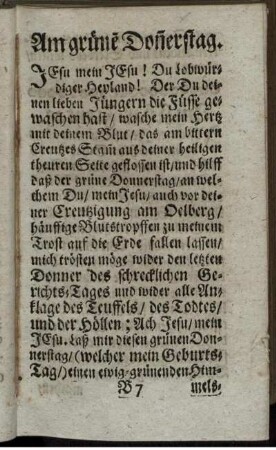 Am grünẽ Doñerstag.
JEsu mein JEsu! Du Lobwür-
diger Heyland! Der Du dei-
nen lieben Jüngern die Füsse ge-
waschen hast/ wasche mein Hertz
mit deinem Blut/ das am bittern
Creutzes Stam̃ aus deiner heiligen
theuren Seite geflossen ist/ und hilff
daß der grüne Donnerstag/ an wel-
chem Du/ mein Jesu/ auch vor dei-
ner Creutzigung am Oelberg/
häuffige Blutstropffen zu meinem
Trost auf die Erde fallen lassen/
mich trösten möge wider den letzten
Donner des schrecklichen Ge-
richts-Tages und wider alle An-
klage des Teuffels/ des Todtes/
und der Höllen; Ach Jesu/ mein
JEsu. Laß mir diesen grünen Don-
nerstag/ (welcher mein Geburts-
Tag/) einen ewig-grünenden Him-
B 7 mels-